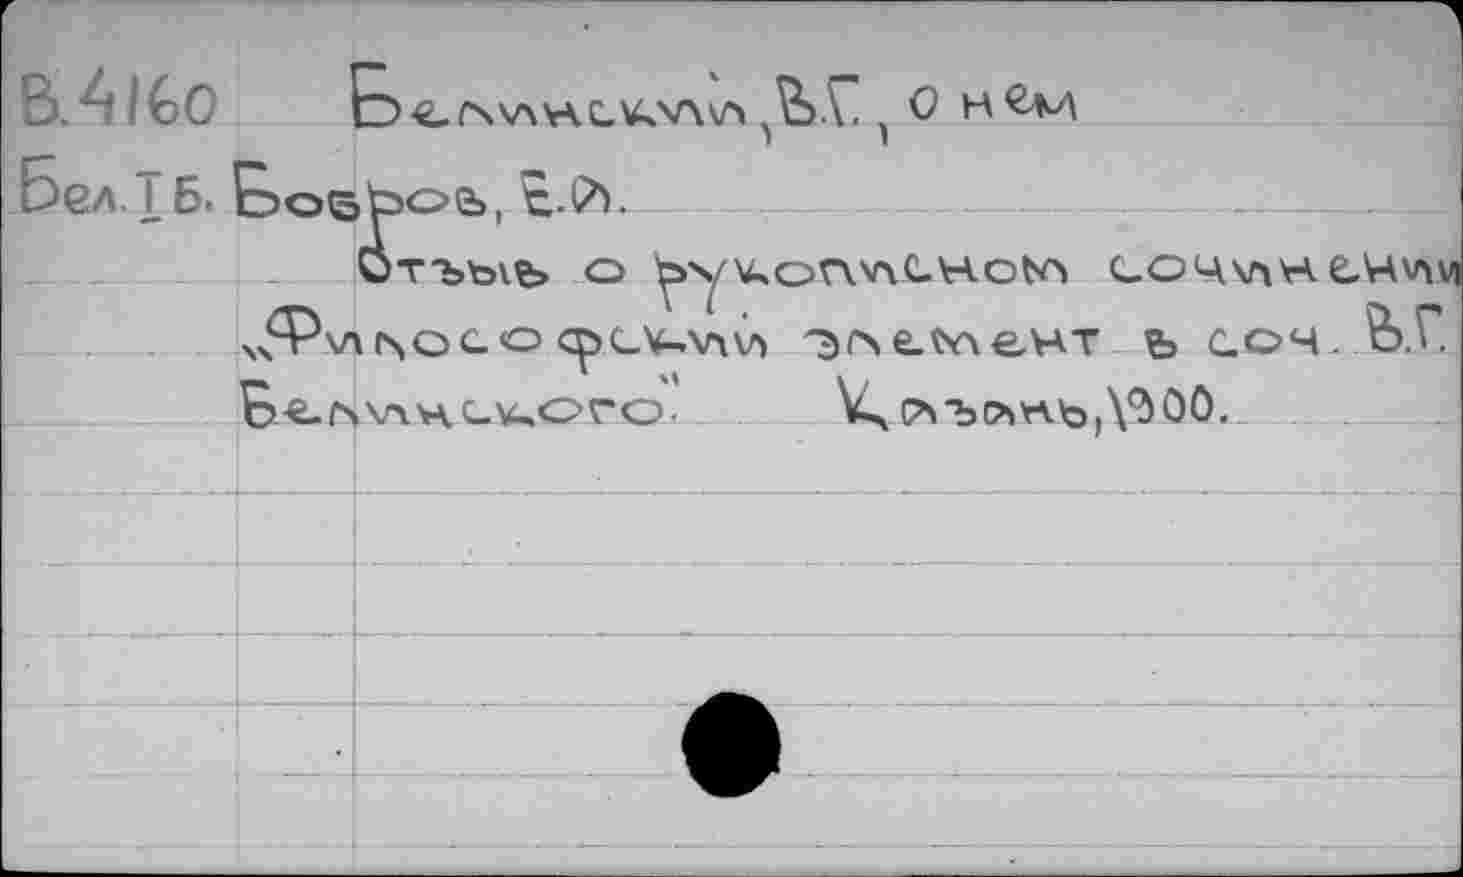 В.4160 Белинский, В.Г., о нем
Бел.ІБ. Бобров, Е.А.
Отзыв о рукописном сочинении
„Философский элемент в соч. В.Г.
Белинского". Казань, 1900.